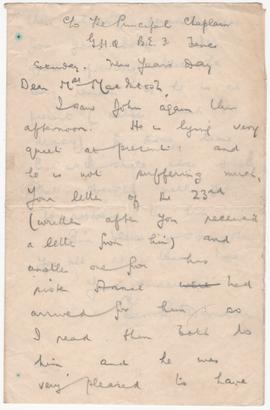 c/o The Principal Chaplain
G.H.Q. B.E.F. France
Sunday. New Year's Day
Dear Mrs MacIntosh,
I saw John again this
afternoon. He is lying very
quiet at present: and
he is not suffering much.
Your letter of the 23rd
(written after you received
a letter from him) and
another one from his
had
arrived for him: so
I read them both to
him and he was
very pleased to have